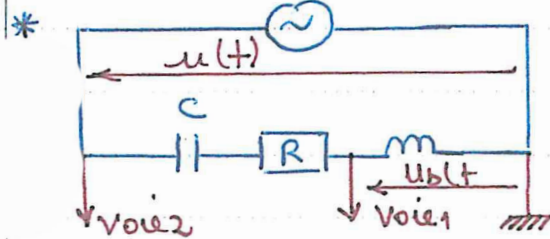 *
~
u(t)
C
R
ub(t
voie2
voie1